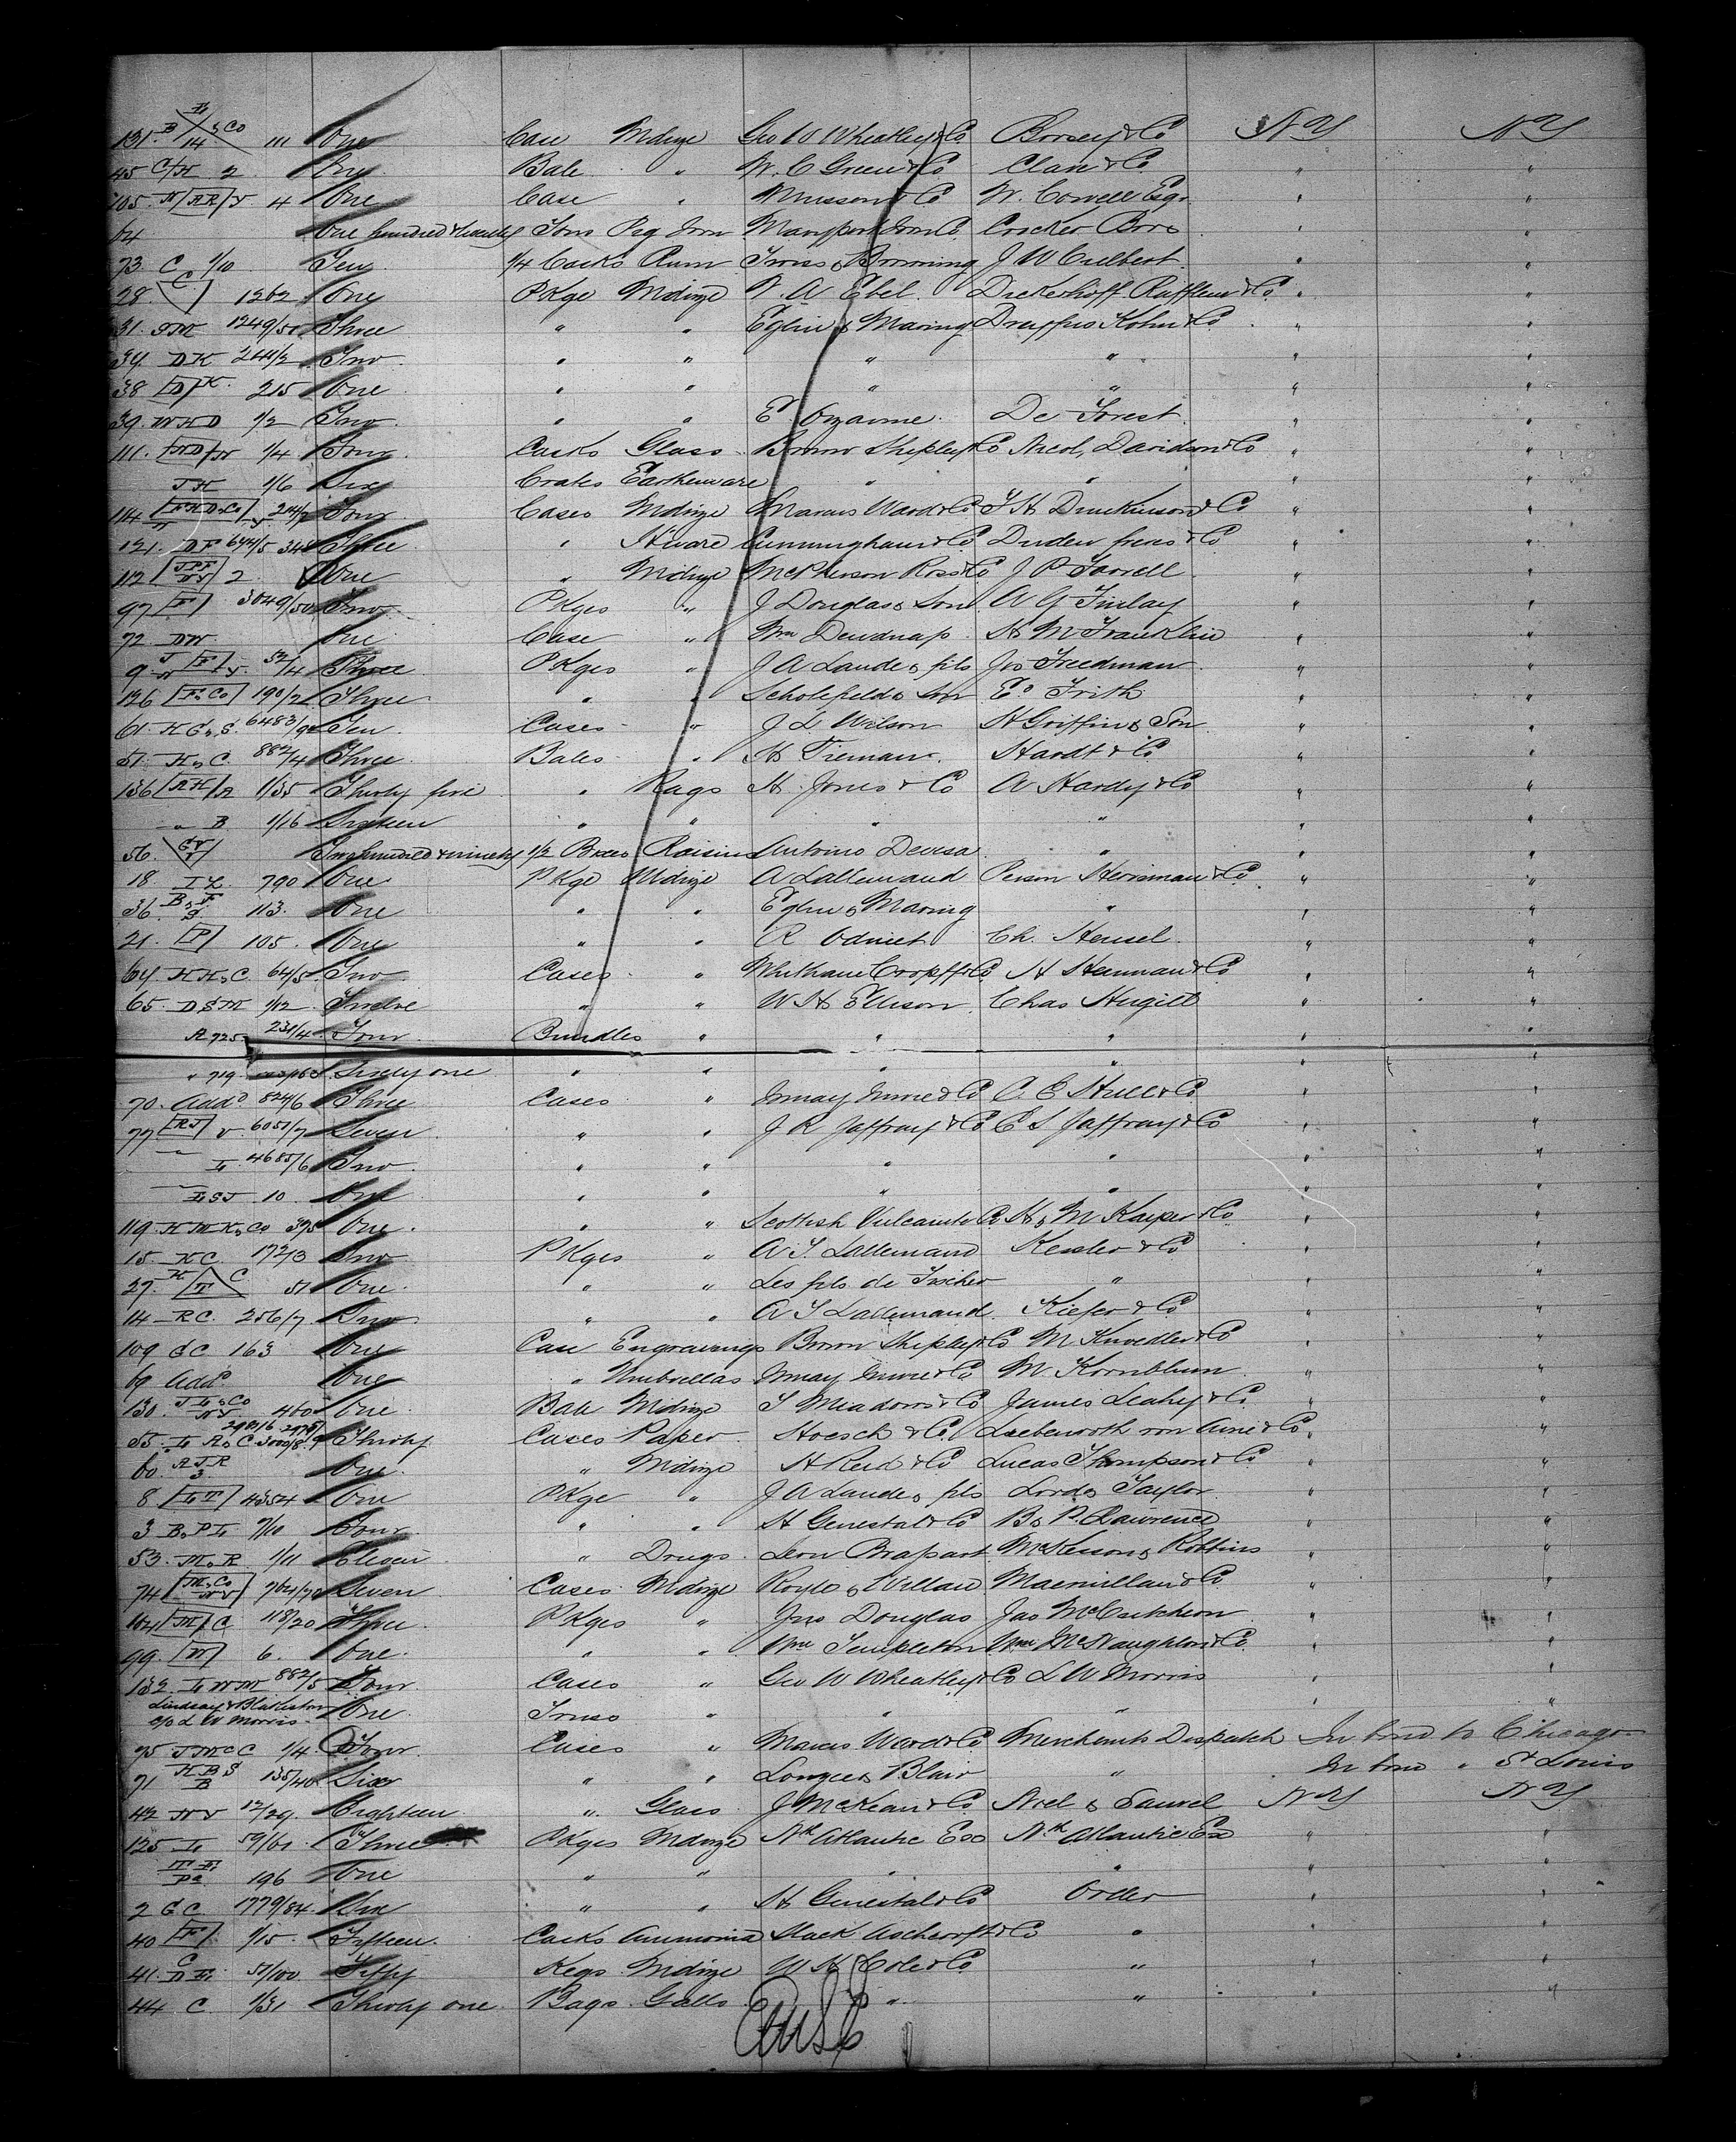 131 B 14 & Co 111 One Case Mdize Geo W Wheatley & Co Borsey & Co N Y N Y
45 C/H 2 One Bale " W. C Green & Co Clan & Co " "
105 N AR Y 4 One Case " Musson & Co W. Cowell Esqr " "
64 One hundred & twenty Tons Pig Iron Maryport Iron Co. Crocker Bros " "
73 C 1/10 Ten 1/4 Casks Rum Irons & Browning J W Culbert " "
28 C 1262 One PKge Mdize A Ebel Dickerhoff Raffleur & Co " "
31 SM 1249/50 Three " " Eglin & Maring Dreyfus Kohn & Co " "
34 DK 2 Two " " " " " "
38 D K 215 One " " " " " "
39 WHD 1/2 Two " " E Ozanne De Forest " "
111 ND N 1/4 Four Casks Glass Brown Shipley & Co Nicol, Davidson & Co " "
JH 1/6 Six Crates Earthenware " " " "
114 Four Cases Mdize Marcus Ward & Co T H Dunkinson & Co " "
121 DF 644/5 345 Three " Hware Cunningham & Co Duden freres & Co " "
112 JPF NY 2 One " Mdize McPherson Ross & Co J P Farrell " "
97 F 3049/50 Two PKges " J Douglas & Son A G Finlay " "
72 DW One Case " Wm Dewdnap H M Franklin " "
9 J F N Y 52/4 Three PKges " J A Laude & fils Jos Freedman " "
126 F & Co 190/2 Three " " Scholefield & Son Eo Frith " "
61 H G & S 6483/92 Ten Cases " J L Wilson H Griffin & Son " "
51 H & C 882/4 Three Bales " H Tieman Hardt & Co " "
136 AH A 1/35 Thirty five " Rags H Jones & Co A Hardy & Co " "
" B 1/16 Sixteen " " " " " "
56 GV V Two hundred & ninety 1/2 Boxes Raisins Antonio Devesa " " "
18 I L 790 One PKge Mdize A Lallemand Person Herriman & Co " "
36 B & F 113 One " " Eglin & Maring " " "
21 P 105 One " " R Odinet Ch. Hensel " "
64 HH & C 64/5 Two Cases " Whithane Cropff & Co H Herrman & Co " "
65 DSM 1/12 Twelve " " W H Ellison Chas Hugill " "
A 725 231/4 Four Bundles " " " " "
" 719 Sixty one " " " " "
70 Addd 824/6 Three Cases " Inmay Imrie & Co C E Hull & Co " "
77 RJ V 6051/7 Seven " " J R Jaffray & Co E S Jaffray & Co " "
" L 4685/6 Two " " " " " "
" LSJ 10 One " " " " " "
119 H M K & Co 375 One " " Scottish Vulcanite Co H & M Kayser & Co " "
15 KC 172/3 Two PKges " A T Lallemand Kessler & Co " "
27 K T C 51 One " " Les fils de Fischer " " "
14 RC 256/7 Two " " A T Lallemand Kiefer & Co " "
109 GC 163 One Case Engravings Brown Shipley & Co M Knoedler & Co " "
69 Addd One " Umbrellas Inmay Imrie & Co M Kornblum " "
130 J L & Co NY 460 One Bale Mdize T Meadows & Co James Leahy & Co " "
55 L A & C 3000/8 Thirty Cases Paper Hoesch & Co Liebenroth von Auw & Co " "
60 AJR 3 One " Mdize H Reid & Co Lucas Thompson & Co " "
8 LT 4354 One PKge " J A Laude & fils Lord & Taylor " "
3 B & PL 7/10 Four " " H Genestal & Co B & P Lawrence " "
53 M & R 1/11 Eleven " Drugs Leon Brapart McKesson & Robbins " "
74 M & Co NY 764/70 Seven Cases Mdize Royle & Willan Macmillan & Co " "
104 M C 118/20 Three PKges " Jno Douglas Jas McCutcheon " "
99 W 6 One " " Wm Templeton Wm McNaughton & Co " "
132 L W M 882/5 Four Cases " Geo W Wheatley & Co L W Morris " "
Lindsay & Blakiston
c/o L W Morris One Truss " " " " "
95 JMcC 1/4 Four Cases " Marcus Ward & Co Merchants Dispatch In bond to Chicago
71 HBS B 135/40 Six " " Longee & Blair " In bond " St Louis
42 NV 12/29 Eighteen " Glass J McKean & Co Noel & Saurel N Y N Y
125 L 59/61 Three PKges Mdize Nth Atlantic Exo Nth Atlantic Ex " "
196 One " " " " " "
2 G C 1779/84 Six " " H Genestal & Co Order " "
40 F 1/15 Fifteen Casks Ammonia Slack Ascheroft & Co " " "
41 C 51/100 Fifty Kegs Mdize W H Cole & Co " " "
44 C 1/31 Thirty one Bags Galls " " " "